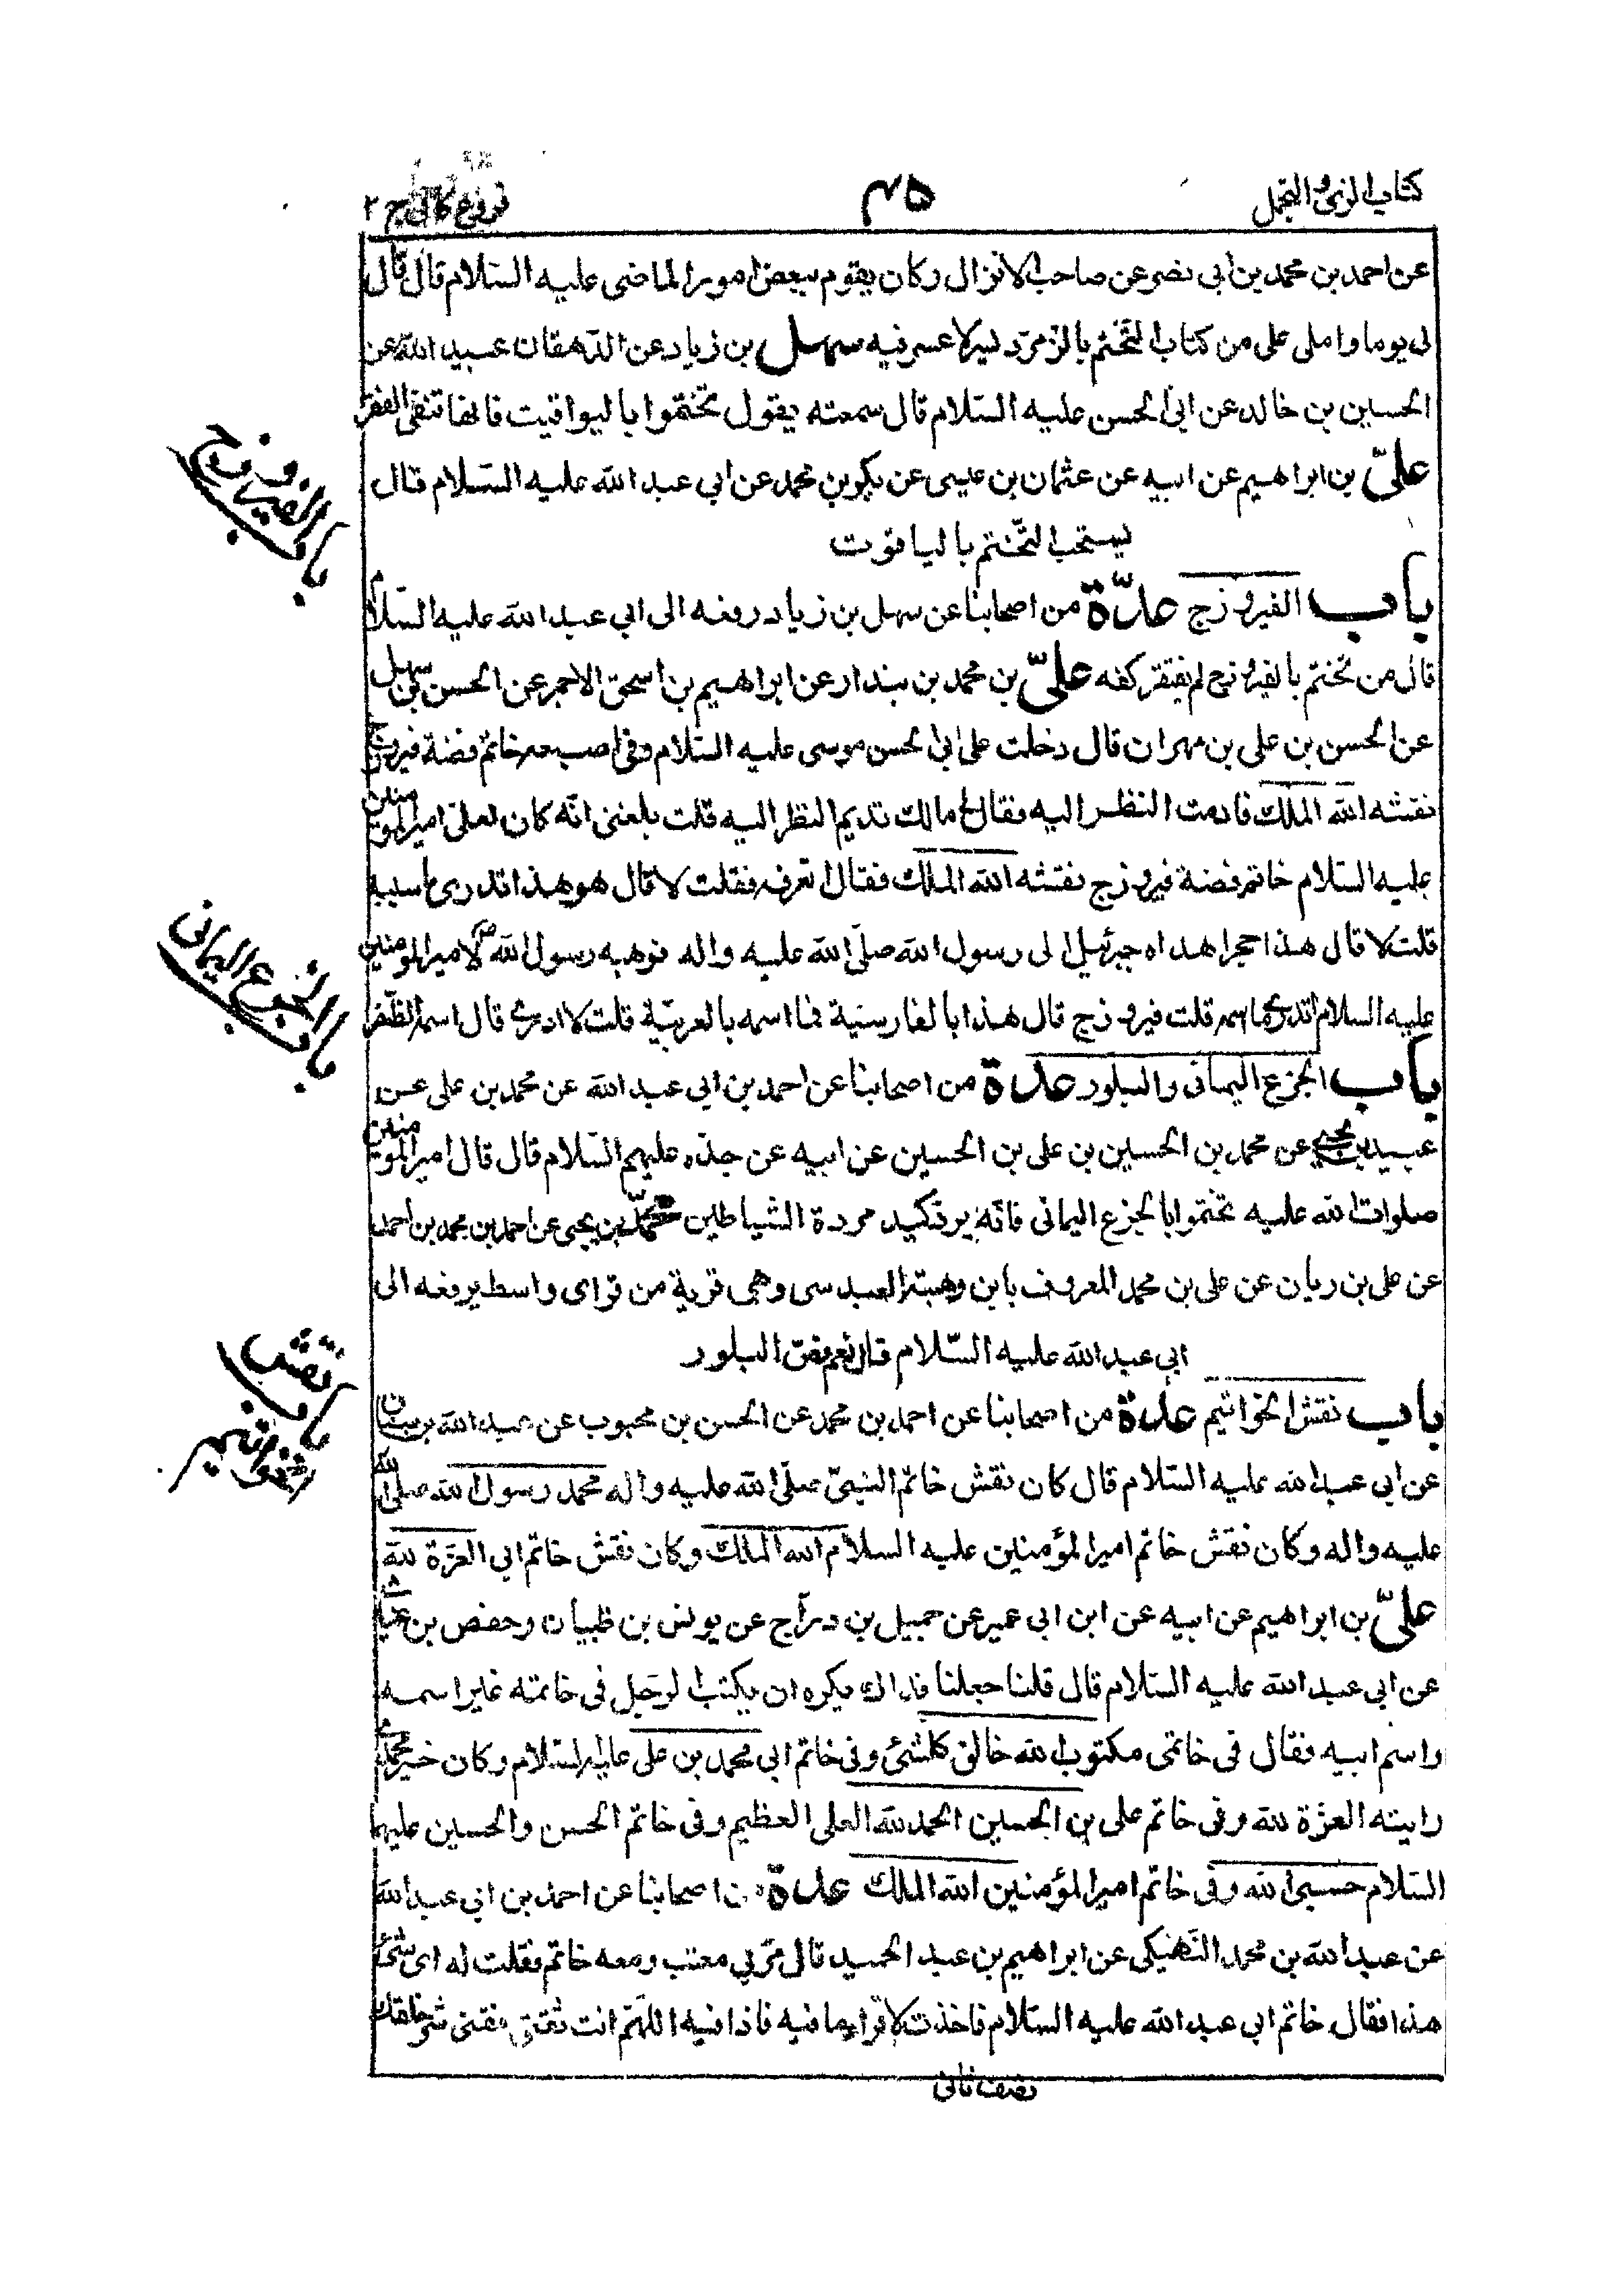 كتاب الزى والتجمل
٣٥
فروع كافى ج ٢
عن احمد بن محمد بن ابى نصر عن صاحب الانزال وكان يقوم ببعض امور الماضى عليه السلام قال قال
لى يوما واملى على من كتاب التختم بالزمرد يسر لا عسر فيه سهل بن زياد عن الدهقان عبيد الله عن
الحسين بن خالد عن ابى الحسن عليه السلام قال سمعته يقول تختموا باليواقيت فانها تنفى الفقر
علىّ بن ابراهيم عن ابيه عن عثمان بن عيسى عن بكر بن محمد عن ابي عبد الله عليه السلام قال
يستحب التختم بالياقوت
باب الفيروزج عدّة من اصحابنا عن سهل بن زياد رفعه الى ابي عبد الله عليه السلام
قال من تختم بالفيروزج لم يفتقر كفه علىّ بن محمد بن بندار عن ابراهيم بن اسحق الاحمر عن الحسن بن سهل
عن الحسن بن على بن مهران قال دخلت على ابى الحسن موسى عليه السلام وفى اصبعه خاتم فضة فيروزج
نقشه الله الملك فادمت النظر اليه فقال لى مالك تديم النظر اليه قلت بلغنى انّه كان لعلى امير المومنين
عليه السلام خاتم فضة فيروزج نقشه الله الملك فقال اتعرفه فقلت لا قال هو هذا تدرى ما سببه
قلت لا قال هذا حجر اهداه جبرئيل الى رسول الله صلّى الله عليه واله فوهبه رسول الله ص لامير المومنين
عليه السلام اتدرى ما اسمه قلت فيروزج قال هذا بالفارسية فما اسمه بالعربيّة قلت لا ادرى قال اسمه الظفر
باب الجزع اليمانى والبلور عدة من اصحابنا عن احمد بن ابي عبد الله عن محمد بن على عن
عبيد بن يحيى عن محمد بن الحسين بن على بن الحسين عن ابيه عن جدّه عليهم السلام قال قال امير المومنين
صلوات الله عليه تختموا بالجزع اليمانى فانّه يرد كيد مردة الشياطين محمّد بن يحيى عن احمد بن محمد بن احمد
عن على بن ريان عن على بن محمد المعروف بابن وهبة العبدسى وهى قرية من قراى واسط يرفعه الى
ابي عبد الله عليه السّلام قال نعم فصّ البلور
باب نقش الخواتيم عدة من اصحابنا عن احمد بن محمد عن الحسن بن محبوب عن عبد الله بن سنان
عن ابي عبد الله عليه السلام قال كان نقش خاتم النبىّ صلّى الله عليه واله محمد رسول الله صلى الله
عليه واله وكان نقش خاتم امير المؤمنين عليه السلام الله الملك وكان نقش خاتم ابى العزة لله
علىّ بن ابراهيم عن ابيه عن ابن ابى عمير عن جميل بن درّاج عن يونس بن ظبيان وحفص بن غياث
عن ابي عبد الله عليه السلام قال قلنا جعلنا فداك يكره ان يكتب الرجل فى خاتمه غير اسمه
واسم ابيه فقال فى خاتمى مكتوب الله خالق كلشئ وفى خاتم ابي محمد بن على عليه السلام وكان خير محمدى
رايته العزّة لله وفى خاتم على بن الحسين الحمد لله العلى العظيم وفى خاتم الحسن والحسين عليهما
السلام حسبى الله وفى خاتم امير المؤمنين الله الملك عدة من اصحابنا عن احمد بن ابي عبد الله
عن عبد الله بن محمد النهيكى عن ابراهيم بن عبد الحميد قال مرّ بي معتب ومعه خاتم فقلت له اى شئ
هذا فقال خاتم ابى عبد الله عليه السلام فاخذت لاقرا ما فيه فاذا فيه اللهم انت ثقتى فقنى شر خلقك
نصف ثانى
باب الفيروزج
باب الجزع اليمانى
باب نقش
الخواتيم